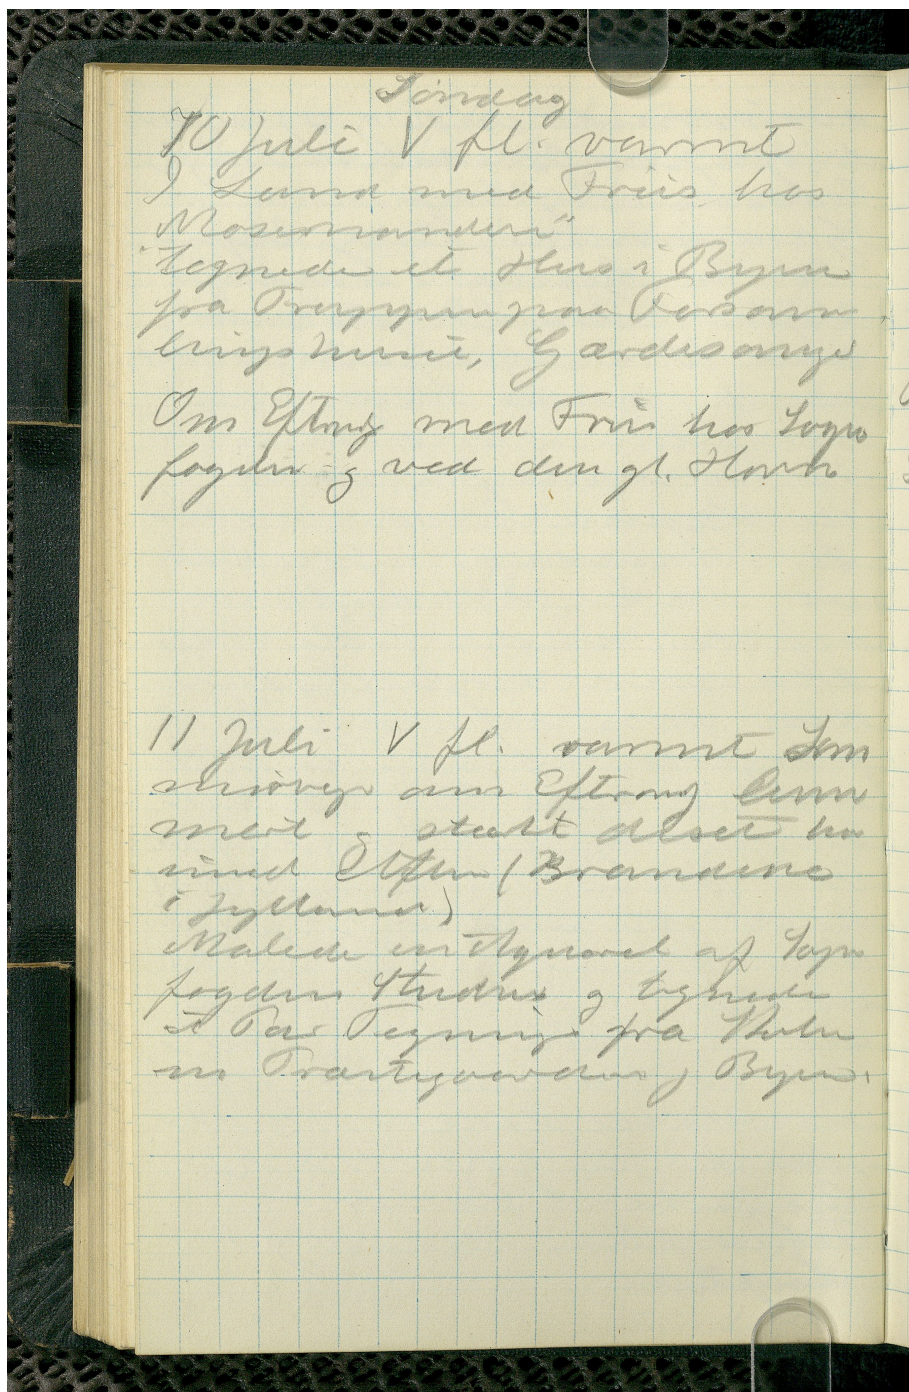 Søndag
10 Juli V fl. varmt
I Land med Friis hos
"Mosemanden"
tegnede et Hus i Byen
fra Trappen paa Forsam
lingshuset, Gærdesanger
Om Eftmdg med Friis hos Sogne
fogden og ved den gl. Havn
11 Juli V fl. varmt Som
mervejr om Eftmdg
og stærkt diset ho
(Brandene
i Jylland)
Malede en Aqvarel af Sogne
fogdens og tegnede
et Par Tegninger fra
en Præstegaarden i Byen.